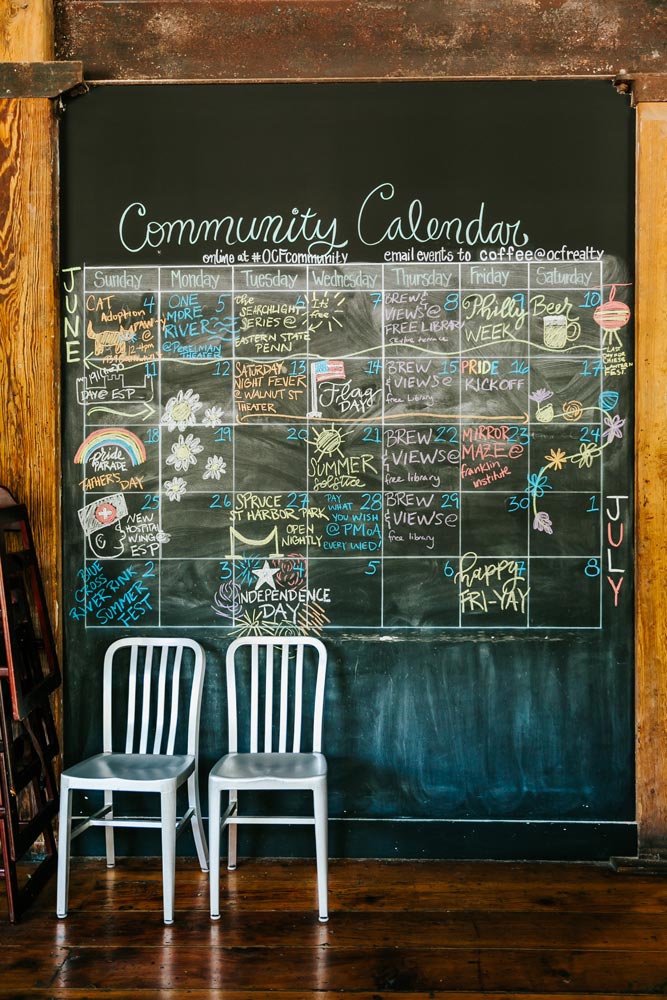 Community Calendar
online at #OCFcommunity email events to coffee@ocfrealty
JUNE
Sunday Monday Tuesday Wednesday Thursday Friday Saturday
4
CAT
Adoption
PAW-ty
@
12-4pm
5
ONE
MORE
RIVER
@ PERELMAN
THEATER
6
the
SEARCHLIGHT
SERIES @
EASTERN STATE
PENN
7
let's
free
8
BREW &
VIEWS @
FREE LIBRARY
9
Philly
BEER
WEEK
10
LAST
DAY FOR
CHINESE
LANTERN
FEST.
11
DAY @ ESP
12
13
SATURDAY
NIGHT FEVER
@ WALNUT ST
THEATER
14
Flag
DAY
15
BREW
& VIEWS @
free Library
16
PRIDE
KICKOFF
17
18
pride
PARADE
FATHER'S DAY
19
20
21
SUMMER
solstice
22
BREW
& VIEWS @
free library
23
MIRROR
MAZE @
franklin
institute
24
25
NEW
HOSPITAL
WING @
ESP
26
27
SPRUCE
ST HARBOR PARK
OPEN
NIGHTLY
28
PAY
WHAT
YOU WISH
@ PMoA
EVERY WED!
29
BREW
& VIEWS @
free library
30
1
JULY
2
BLUE
CROSS
RIVER RINK
SUMMER
FEST
3
4
INDEPENDENCE
DAY
5
6
7
happy
FRI-YAY
8